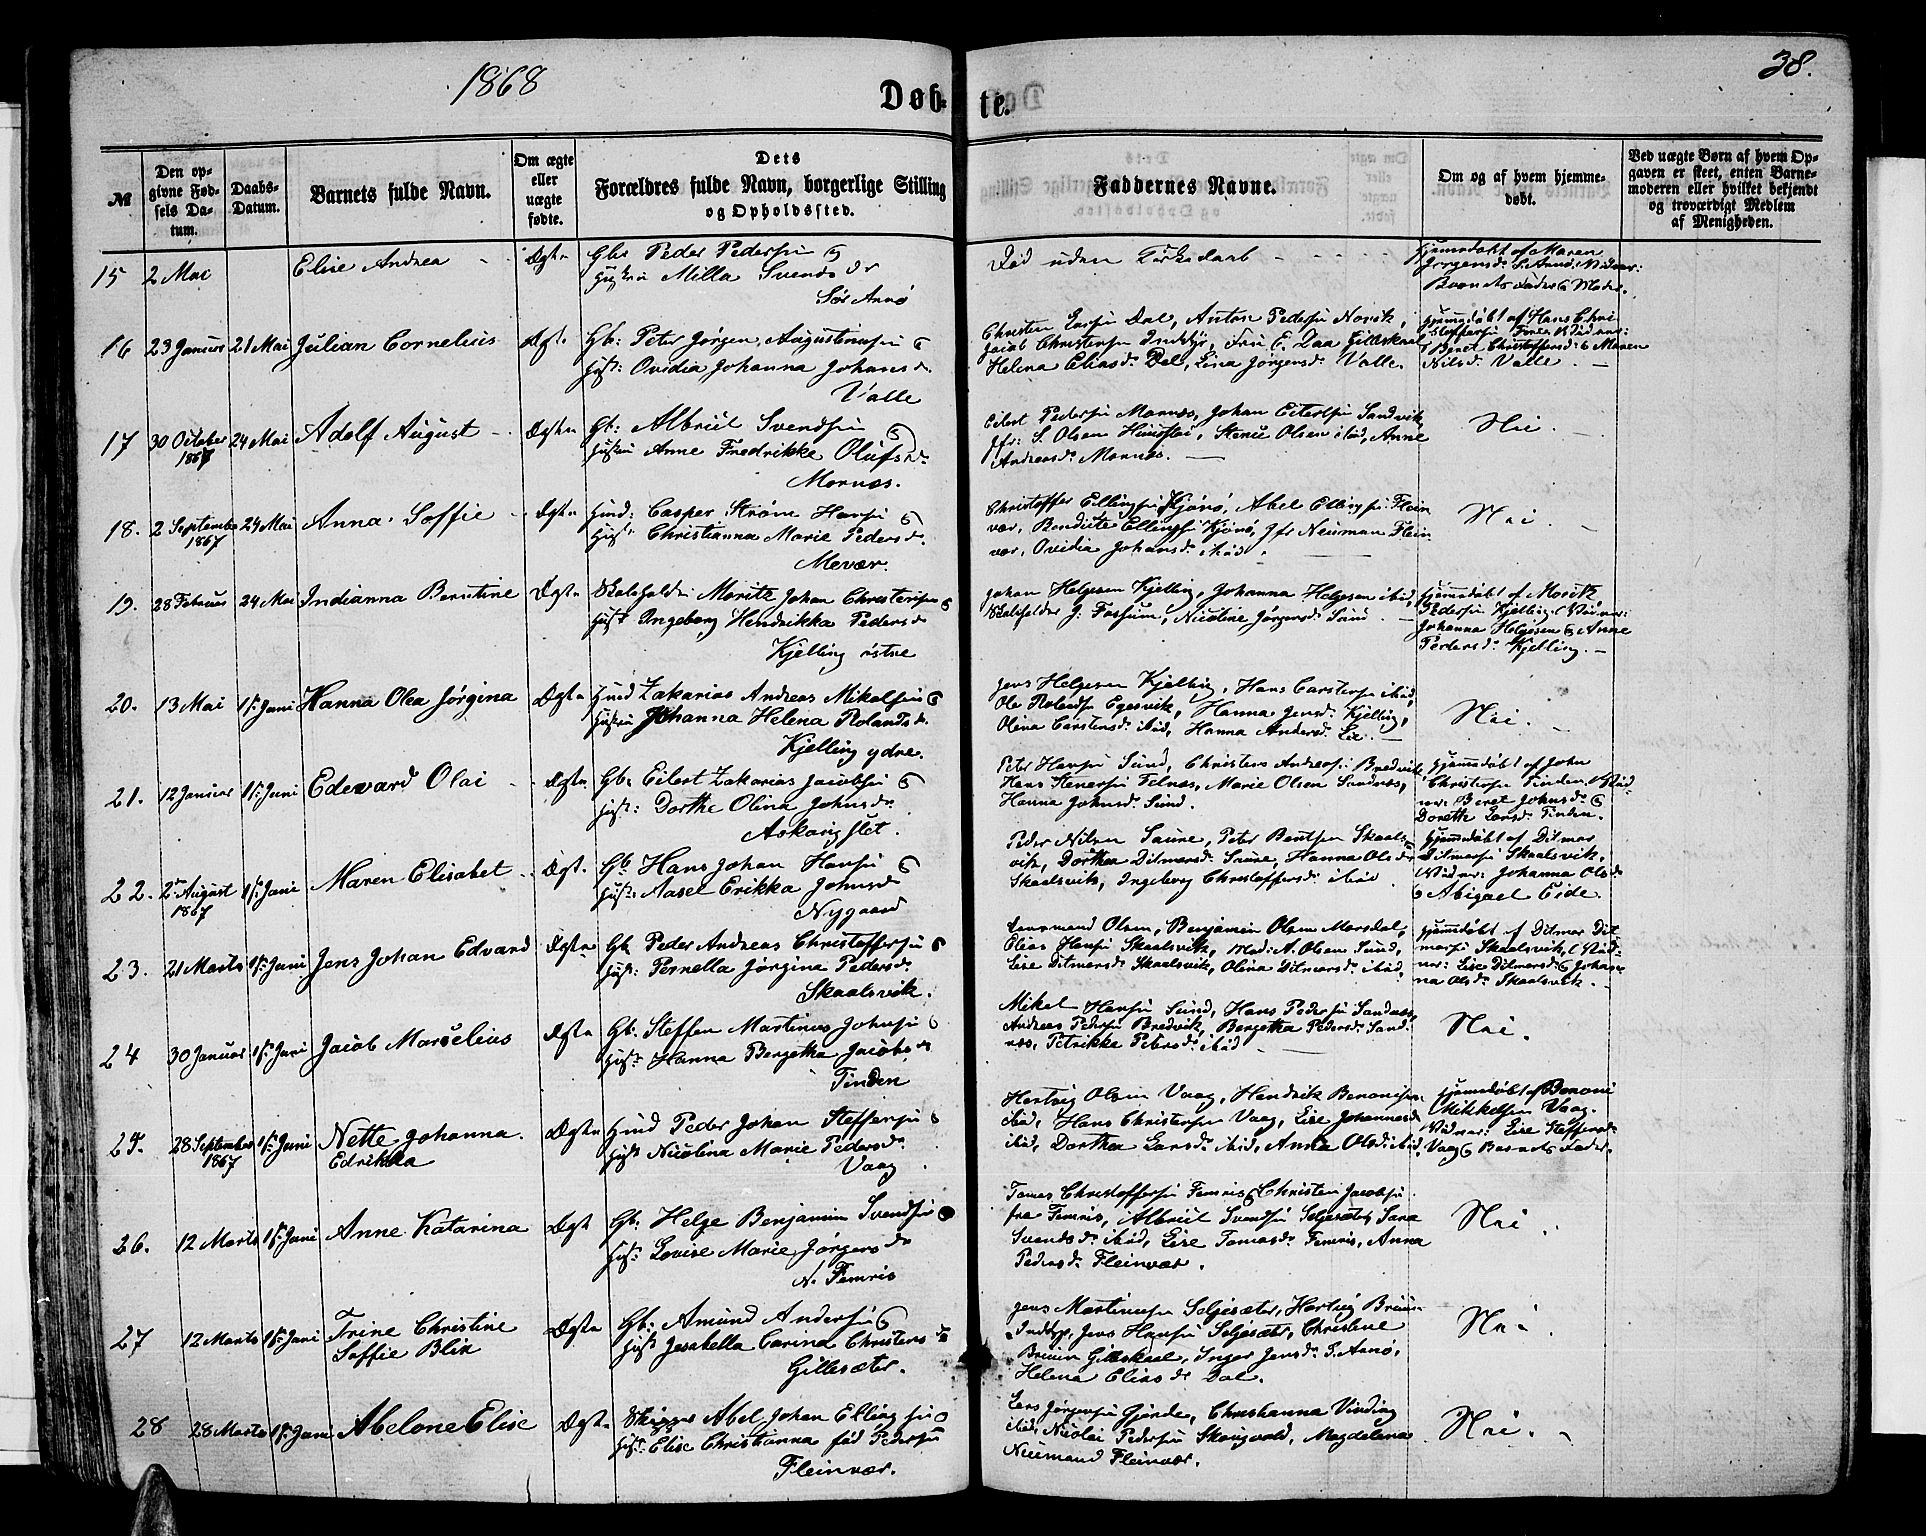 1868
38.
Døb-
te.
№
Den op-
givne Fød-
sels Da-
tum.
Daabs-
Datum.
Barnets fulde Navn.
Om ægte
eller
uægte
fødte.
Dets
Forældres fulde Navn, borgerlige Stilling
og Opholdssted.
Faddernes Navne.
Om og af hvem hjemme-
døbt.
Ved uægte Børn af hvem Op-
gaven er skeet, enten Barne-
moderen eller hvilket bekjendt
og troværdigt Medlem
af Menigheden.
15 2 Mai Elise Andrea Ægte Gbr Peder Pedersen
Milla Svendsdr
Sør Arnø
Død uden Kirkedaab
Hjemmedøbt af Maren
Jørgensdr S. Arnø
Barnets Fader & Moder.
16 23 Januar 21 Mai Julian Cornelius Ægte Gb: Peter Jørgen Augustinusen
Hust: Ovidia Johanna Johansdr
Valle
Christen Dal, Anton Pedersen Norvik,
Jacob Christensen Indtyr, Fru E. Zaa Gilleskaal
Helena Eliasdr Dal, Lina Jørgensdr Valle.
Hjemmedøbt af Hans Chri
stoffersen
Beret Christoffersdr & Maren
Nilsdr Valle.
17 30 October 24 Mai Adolf August Ægte Gb: Albriil Svendsen
1867
Hustru Anne Fredrikke Olufsdr
Mornes.
Eilert Pedersen Mornes, Johan Eilertsen Sandvik,
Jfr: S. Olsen, Olsen ibid, Anne
Andersdr Mornes.
Nei.
18. 2 September 24 Mai Anna Soffie Ægte Hmd: Casper Strøm Hansen
1867
Hust: Christianna Marie Pedersdr
Mevær.
Christoffer Ellingsen Kjønø, Abel Ellingsen Flein
vær, Bendikte Ellingsen Kjønø, Jfr Neuman Flein
vær, Ovidia Johansdr ibid.
Nei.
19. 28 Februar 24 Mai Indianna Berntine Ægte Moritz Johan Christensen
Hust Ingeborg Hendrikka Pedersdr
Kjelling østre
Johan Helgesen Kjelling, Johanna Helgesen ibid,
J: Fossum, Nicoline Jørgensdr Sund.
Hjemmedøbt af Moritz
Pedersen Kjelling (Vidner:
Johanna Helgesen & Anne
Pedersdr Kjelling.
20. 13 Mai 1ste Juni Hanna Olea Jørgina Ægte Hmd Zakarias Andreas Mikalsen
Hustru Johanna Helena Rolandsdr
Kjelling ydre.
Jens Helgesen Kjelling, Hans Carstensen ibid,
Ole Rolandsen Egesvik, Hanna Jensdr Kjelling,
Olina Carstensdr ibid, Hanna Andersdr
Nei.
21. 12 Januar 1ste Juni Edevard Olai Ægte Gb: Eilert Zakarias Jacobsen
Hust: Dorthe Olina Johnsdr
Peter Hansen Sund, Christen Andersen Bredvik,
Hans Felnæs, Marie Olsen Sandnæs,
Hanna Johnsdr Sund.
Hjemmedøbt af John
Christensen Tinden (Vid
ner: Beret Johnsdr &
Dorethe Larsdr Tinden.
22. 2den August 1ste Juni Maren Elisabet Ægte Gb Hans Johan Hansen
1867
Hust: Aasel Erikka Johnsdr
Nygaard
Peder Nilsen Saune, Peter Berntsen Skaals-
vik, Dorthea Ditmarsdr Saune, Hanna Olsdr
Skaalsvik, Ingeborg Christoffersdr ibid
Hjemmedøbt af Ditmar
Ditmarsen Skaalsvik.
(Vidner: Johanna Olsdr
& Abigael Eide.
23. 21 Marts 1ste Juni Jens Johan Edvard Ægte Gb Peder Andreas Christoffersen
Hust: Pernella Jørgina Pedersdr
Skaalsvik.
Olsen, Benjamin Olsen Morsdal,
Elias Hansen Skaalsvik, Mad: A. Olsen Sund,
Lise Ditmarsdr Skaalsvik, Olina Ditmarsdr ibid,
Hjemmedøbt af Ditmar Dit
marsen Skaalsvik, (Vid-
ner: Lise Ditmarsdr & Johan
na Olsdr Skaalsvik.
24 30 Januar 1ste Juni Jacob Marselius Ægte Gb: Steffen Martinus Johnsen
Hust: Hanna Bergetha Jacobsdr
Tinden
Mikel Hansen Sund, Hans Pedersen Sandnæs,
Andreas Pedersen Bredvik, Bergetha Pedersdr Sand
næs, Petrikka Petersdr ibid
Nei.
25. 28 September 1ste Juni Nette Johanna Ægte Hmd Peder Johan Steffensen
1867 Edrikka
Hust Nicolina Marie Pedersdr
Vaag
Hertvig Olsen Vaag, Hendrik Benonisen
ibid, Hans Christensen Vaag, Lise Johannesdr
ibid, Dorthea Larsdr ibid, Anna Olsdr ibid.
Hjemmedøbt af Benoni
Mikkelsen Vaag.
Vidner: Lise Steffensdr
Vaag & Barnets Fader.
26. 12 Marts 1ste Juni Anne Katarina Ægte Gb: Helge Benjamin Svendsen
Hust: Lovise Marie Jørgensdr
N. Femris
Tomas Christoffersen Femris & Christen Jacobsen
fra Femris, Albriil Svendsen Seljesæter, Sara
Svendsdr ibid, Lise Tomasdr Femris, Anna
Pedersdr Fleinvær.
Nei
27 12 Marts 1ste Juni Trine Christine Ægte Gb: Amund Andersen
Soffie Blix
Hust Jesabella Carina Christensdr
Gillesæter.
Jens Martinusen Seljesæter, Hartvig Bruun
Indtyr, Jens Hansen Seljesæter, Christine
Bruun Gilleskaal, Inger Jensdr S. Arnø,
Helena Eliasdr Dal.
Nei
28 28 Marts 1ste Juni Abelone Elise Ægte Skipper Abel Johan Ellingsen
Hust: Elise Christianna fød Pedersen
Fleinvær.
Lars Jørgensen Gjerde, Christianna Vinding
ibid, Nicolai Pedersen Skongsvold, Magdelena
Neumand Fleinvær.
Nei.